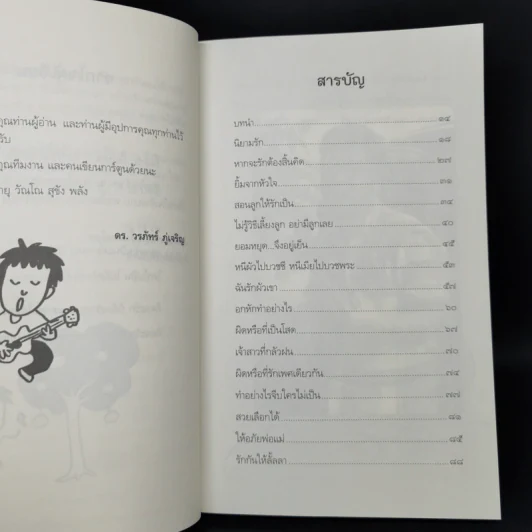 คุณท่านผู้อ่าน และท่านผู้มีอุปการคุณทุกท่านไว้
รับ
คุณทีมงาน และคนเขียนการ์ตูนด้วยนะ
ายุ วัณโณ สุขัง พลัง
ดร. วรภัทร์ ภู่เจริญ
สารบัญ
บทนำ ๑๔
นิยามรัก ๑๘
หากจะรักต้องสิ้นคิด ๒๗
ยิ้มจากหัวใจ ๓๑
สอนลูกให้รักเป็น ๓๔
ไม่รู้วิธีเลี้ยงลูก อย่ามีลูกเลย ๔๐
ยอมหยุด...จึงอยู่เย็น ๔๕
หนีผัวไปบวชชี หนีเมียไปบวชพระ ๕๓
ฉันรักผัวเขา ๕๗
อกหักทำอย่างไร ๖๐
ผิดหรือที่เป็นโสด ๖๗
เจ้าสาวที่กลัวฝน ๗๐
ผิดหรือที่รักเพศเดียวกัน ๗๔
ทำอย่างไรจีบใครไม่เป็น ๗๗
สวยเลือกได้ ๘๑
ให้อภัยพ่อแม่ ๘๕
รักกันให้ลั้ลลา ๘๘